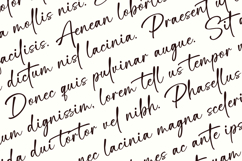 a mollis nisi. S
facilisis. Aenean lobortis
dictum nisl lacinia. Praesent ut
Donec quis pulvinar augue. Sit
um dignissim, lorem tell us tempor
da dui tortor vel nibh. Phasellus
nec lacinia magna sceleri
mes ac ante ips